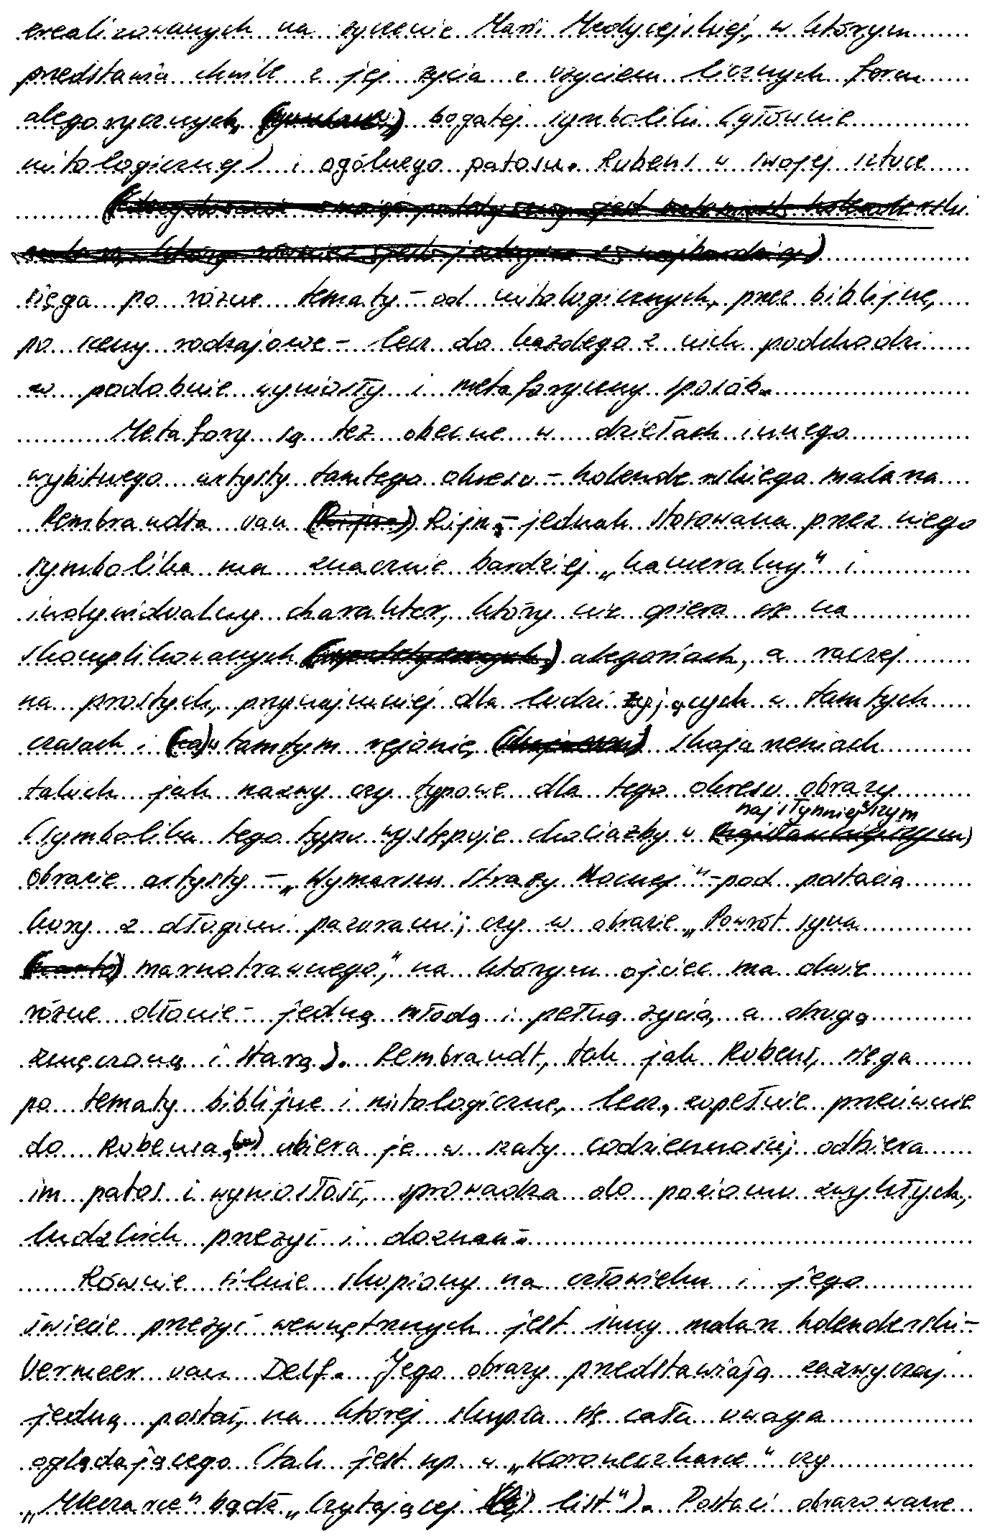 zrealizowanych na życzenie Marii Medycejskiej, w którym
przedstawia chwile z jej życia z użyciem licznych form
alegorycznych, bogatej symboliki (głównie
mitologicznej) i ogólnego patosu. Rubens w swojej sztuce
sięga po różne tematy – od mitologicznych, przez biblijne,
po sceny rodzajowe – lecz do każdego z nich podchodzi
w podobnie wyniosły i metaforyczny sposób.
Metafory są też obecne w dziełach innego
wybitnego artysty tamtego okresu – holenderskiego malarza
Rembrandta van Rijna, – jednak stosowana przez niego
symbolika ma znacznie bardziej „kameralny" i
indywidualny charakter, który nie opiera się na
skomplikowanych alegoriach, a raczej
na prostych, przynajmniej dla ludzi żyjących w tamtych
czasach i w tamtym rejonie, skojarzeniach
takich jak nazwy czy typowe dla tego okresu obrazy
(symbolika tego typu występuje chociażby w najsłynniejszym
obrazie artysty – „Wymarszu Straży Nocnej" – pod postacią
kury z długimi pazurami; czy w obrazie „Powrót syna
marnotrawnego," na którym ojciec ma dwie
różne dłonie – jedną młodą i pełną życia, a drugą
zmęczoną i starą). Rembrandt, tak jak Rubens, sięga
po tematy biblijne i mitologiczne, lecz, zupełnie przeciwnie
do Rubensa, ubiera je w szaty codzienności, odbiera
im patos i wyniosłość, sprowadza do poziomu zwykłych,
ludzkich przeżyć i doznań.
Równie silnie skupiony na człowieku i jego
świecie przeżyć wewnętrznych jest inny malarz holenderski –
Vermeer van Delf. Jego obrazy przedstawiają zazwyczaj
jedną postać, na której skupia się cała uwaga
oglądającego (tak jest np. w „Koronczarce" czy
„Mleczarce" bądź „Czytającej list"). Postaci obrazowane